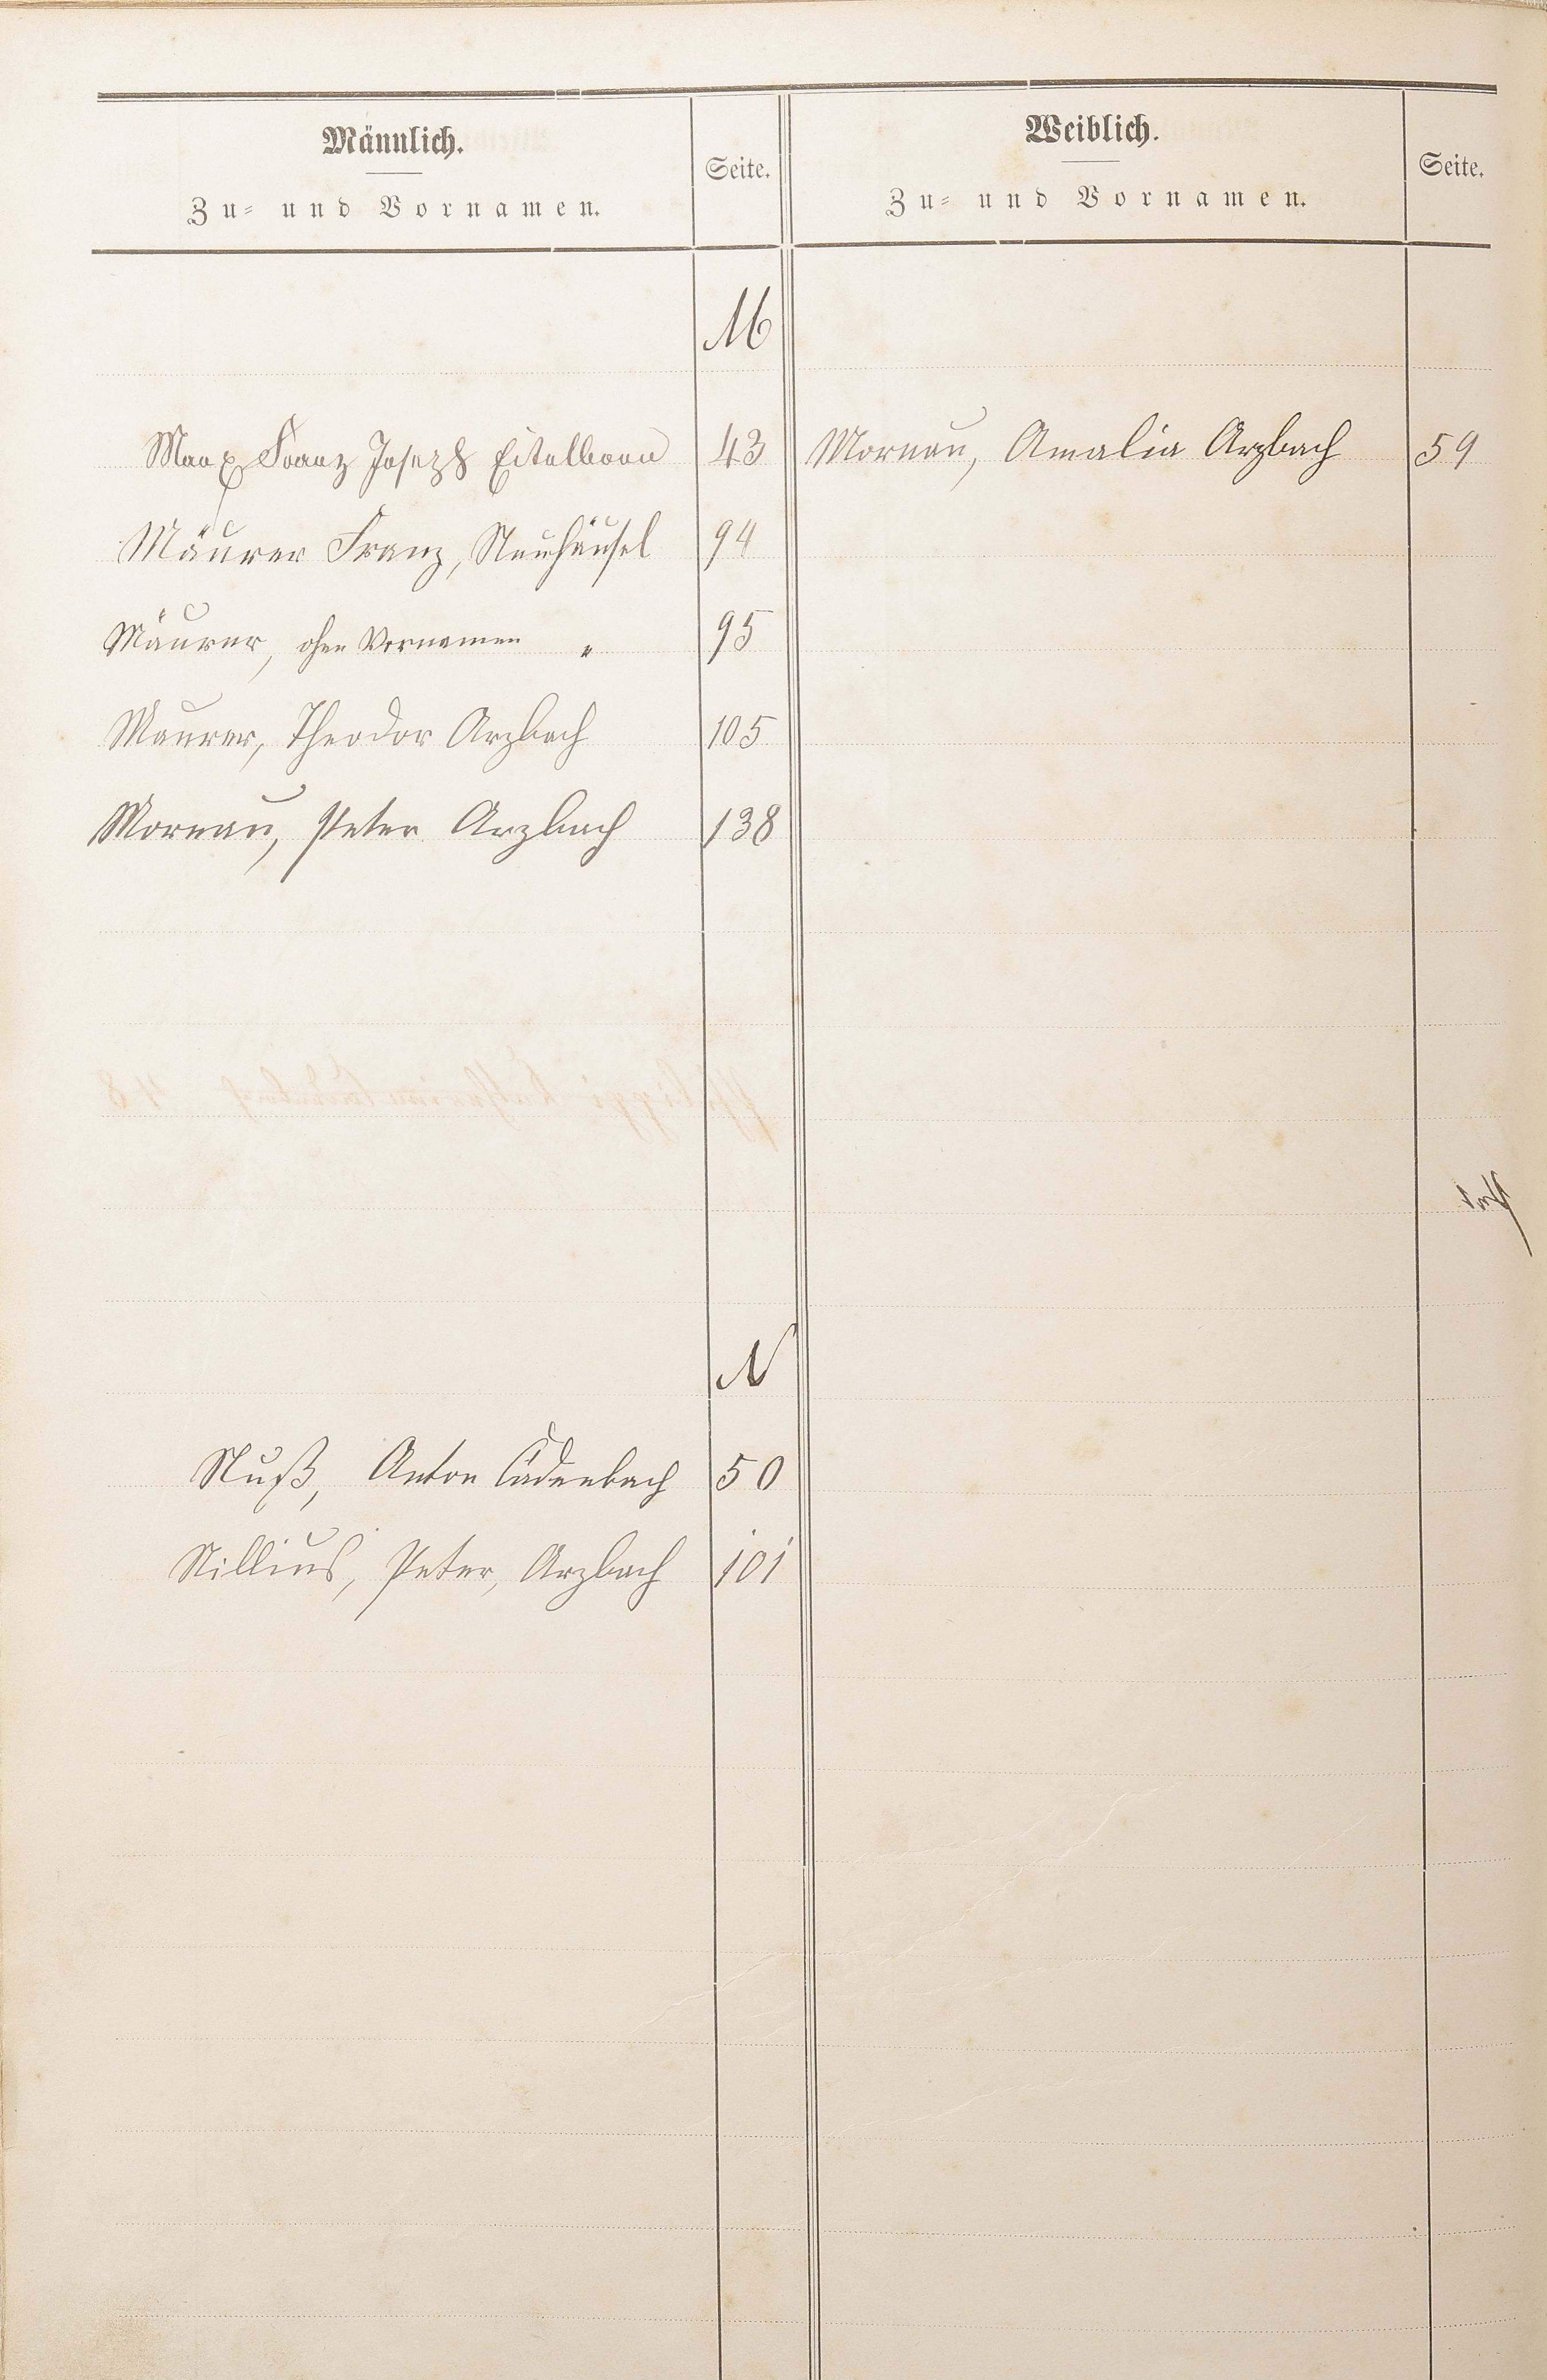 Männlich.
Zu- und Vornamen.
Seite.
Weiblich.
Zu- und Vornamen.
Seite.
M
Marx Franz Joseph Eitelborn 43 Mornau, Amalia Arzbach 59
Mäurer Franz, Neuhäusel 94
Mäurer, ohne Vornamen " 95
Maurer, Theodor Arzbach 105
Mornau, Peter Arzbach 138
N
Nuß, Anton Cadenbach 50
Nillius, Peter, Arzbach 101